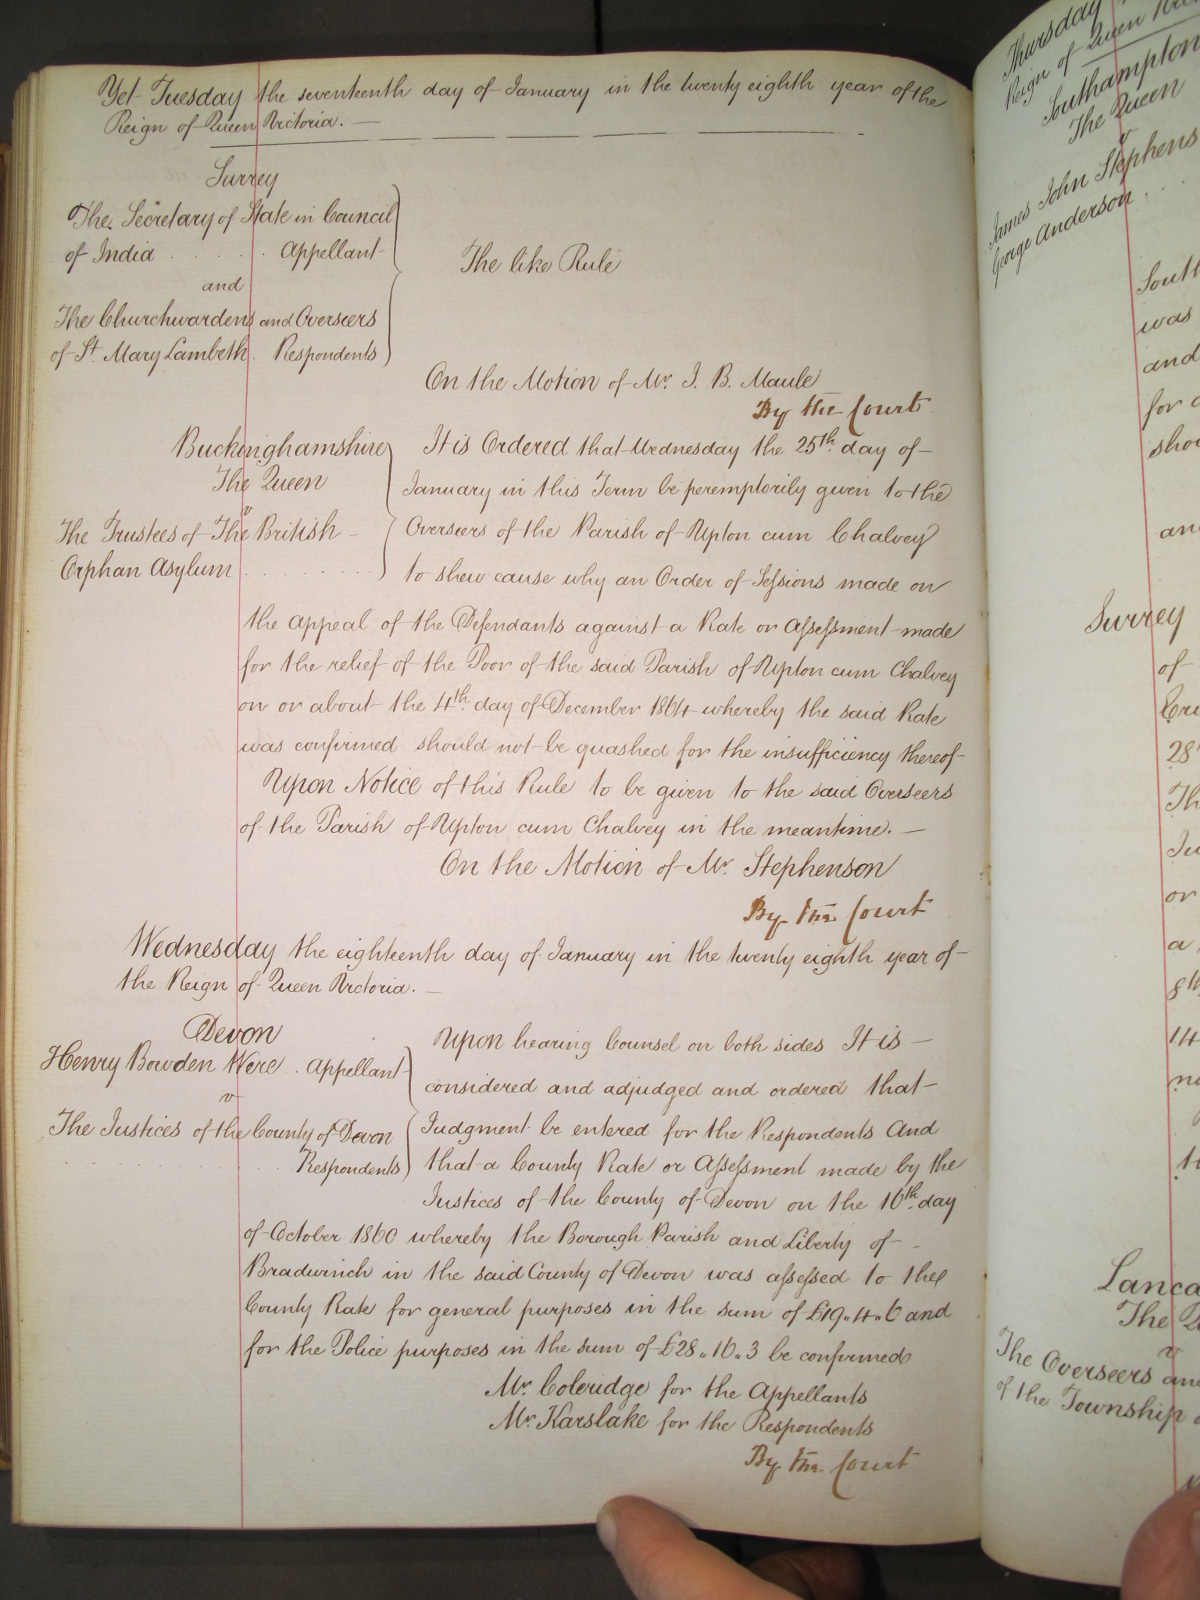 Yet Tuesday the seventeenth day of January in the twenty eighth year of the
Reign of Queen Victoria. —
Surrey
The Secretary of State in Council
of India . . . . . Appellant
and
The Churchwardens and Overseers
of St. Mary Lambeth. Respondents
The like Rule
On the Motion of Mr. J. B. Maule
By the Court
Buckinghamshire
The Queen
v
The Trustees of The British
Orphan Asylum . . . . . . . .
It is Ordered that Wednesday the 25th. day of
January in this Term be peremptorily given to the
Overseers of the Parish of Upton cum Chalvey
to shew cause why an Order of Sessions made on
the appeal of the Defendants against a Rate or Assessment made
for the relief of the Poor of the said Parish of Upton cum Chalvey
on or about the 4th. day of December 1864 whereby the said Rate
was confirmed should not be quashed for the insufficiency thereof
Upon Notice of this Rule to be given to the said Overseers
of the Parish of Upton cum Chalvey in the meantime. —
On the Motion of Mr. Stephenson
By the Court
Wednesday the eighteenth day of January in the twenty eighth year of
the Reign of Queen Victoria. —
Devon
Henry Bowden Were . Appellant
v
The Justices of the County of Devon
Respondents
Upon hearing Counsel on both sides It is —
considered and adjudged and ordered that
Judgment be entered for the Respondents And
that a County Rate or Assessment made by the
Justices of the County of Devon on the 16th. day
of October 1860 whereby the Borough Parish and Liberty of
Bradninch in the said County of Devon was assessed to the
County Rate for general purposes in the sum of £19.4.6 and
for the Police purposes in the sum of £28.16.3 be confirmed
Mr. Coleridge for the Appellants
Mr. Karslake for the Respondents
By the Court
Thursday
Reign of Queen
Southampton
The Queen
v
James John Stephens
George Anderson . .
was
and
for
Surrey
of
28
or
a
14
The
v
The Overseers
of the Township